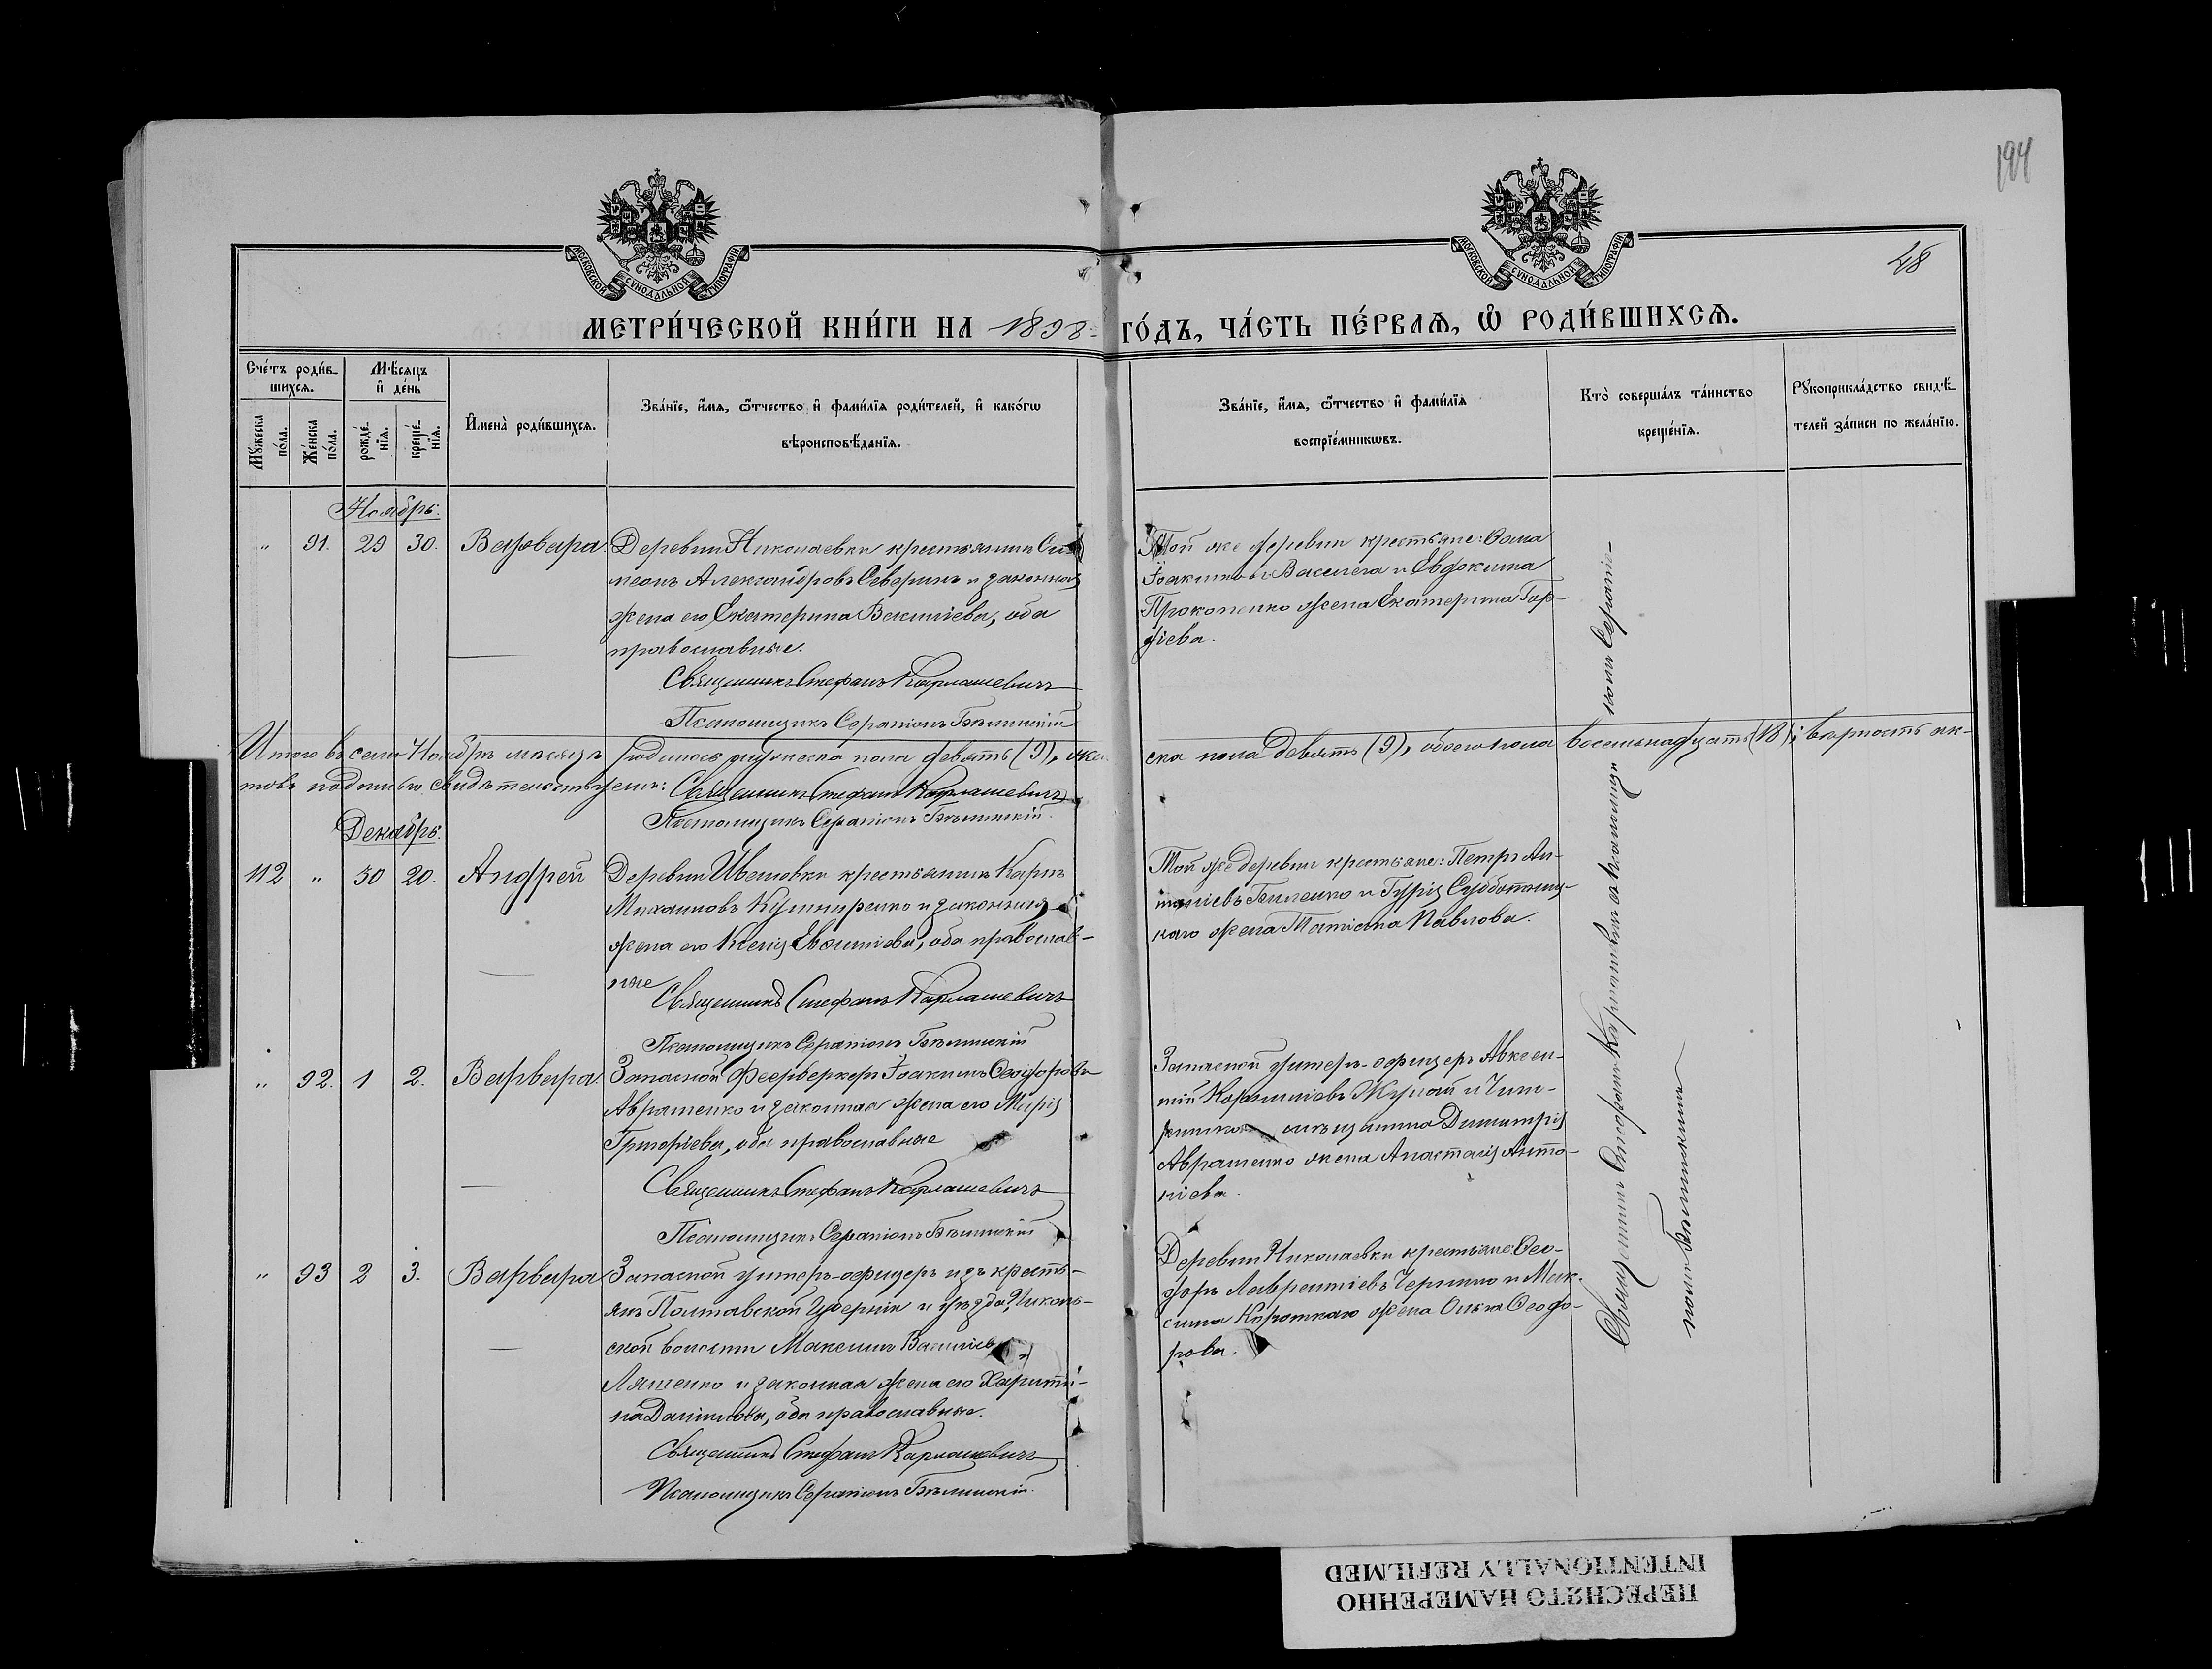 194
48
МОСКОВСКОЙ СУНОДАЛЬНОЙ ТИПОГРАФІИ
МОСКОВСКОЙ СУНОДАЛЬНОЙ ТИПОГРАФІИ
МЕТРИ́ЧЕСКОЙ КНИ́ГИ НА 1898 ГО́ДЪ, ЧА́СТЬ ПЕ́РВАѦ, Ѽ РОДИ́ВШИХСѦ.
Сче́тъ роди́в-
шихсѧ.
Мꙋ́жеска
по́ла.
Же́нска
по́ла.
Мѣ́сѧцъ
и҆ де́нь
рожде́-
нїѧ.
креще́-
нїѧ.
И҆мена̀ роди́вшихсѧ.
Зва́нїе, и҆́мѧ, ѻ҆́тчество и҆ фами́лїѧ роди́телей, и҆ како́гѡ
вѣроисповѣ́данїѧ.
Зва́нїе, и҆́мѧ, ѻ҆́тчество и҆ фами́лїѧ
воспрїе́мникѡвъ.
Кто̀ соверша́лъ та́инство
креще́нїѧ.
Рꙋкоприкла́дство свидѣ́-
телей за́писи по жела́нїю.
Ноябрь.
" 91. 29 30. Варвара. Деревни Николаевки крестьянинъ Си-
меонъ Александровъ Северинъ и законная
жена его Екатерина Василіева, оба
православные.
Священникъ Стефанъ Карпашевичъ
Псаломщикъ Серапіонъ Бѣлинскій
Той же деревни крестьяне: Ѳома
Іоакимовъ и Евдокима
Прокопенко жена Екатерина Гор-
діева.
Итого въ семъ Ноябрѣ мѣсяцѣ родилось мужеска пола девять (9), жен-
ска пола девять (9), обоего пола восемьнадцать (18); вѣрность ак-
товъ подписью свидѣтельствуемъ: Священникъ Стефанъ Карпашевичъ
Псаломщикъ Серапіонъ Бѣлинскій.
Декабрь.
112 " 30 20. Андрей Деревни Ивановки крестьянинъ Карпъ
Михаиловъ Кушниренко и законная
жена его Ксенія оба православ-
ные
Священникъ Стефанъ Карпашевичъ
Псаломщикъ Серапіонъ Бѣлинскій
Той же деревни крестьяне: Петръ Ан-
и Гурія Субботниц-
каго жена Татіана Павлова.
" 92. 1 2. Варвара. Запасной фейерверкеръ Іоакимъ Ѳеодоровъ
Авраменко и законная жена его Марія
Григоріева, оба православные
Священникъ Стефанъ Карпашевичъ
Псаломщикъ Серапіонъ Бѣлинскій
Запасной унтеръ-офицеръ Авксен-
тій Корниліевъ и
Димитрія
Авраменко жена Анастасія Анто-
ніева.
" 93 2 3. Варвара Запасной унтеръ-офицеръ изъ кресть-
янъ Полтавской губерніи и уѣзда, Николь-
ской волости Максимъ Василіевъ
Ляшенко и законная жена его Харити-
на Даніилова, оба православные.
Священникъ Стефанъ Карпашевичъ
Псаломщикъ Серапіонъ Бѣлинскій.
Деревни Николаевки крестьяне: Ѳео-
доръ Лаврентіевъ и Мак-
сима Короткаго жена Ольга Ѳеодо-
рова.
Священникъ Стефанъ Карпашевичъ съ псаломщикомъ Серапіо-
номъ Бѣлинскимъ
ПЕРЕСНЯТО НАМЕРЕННО
INTENTIONALLY REFILMED